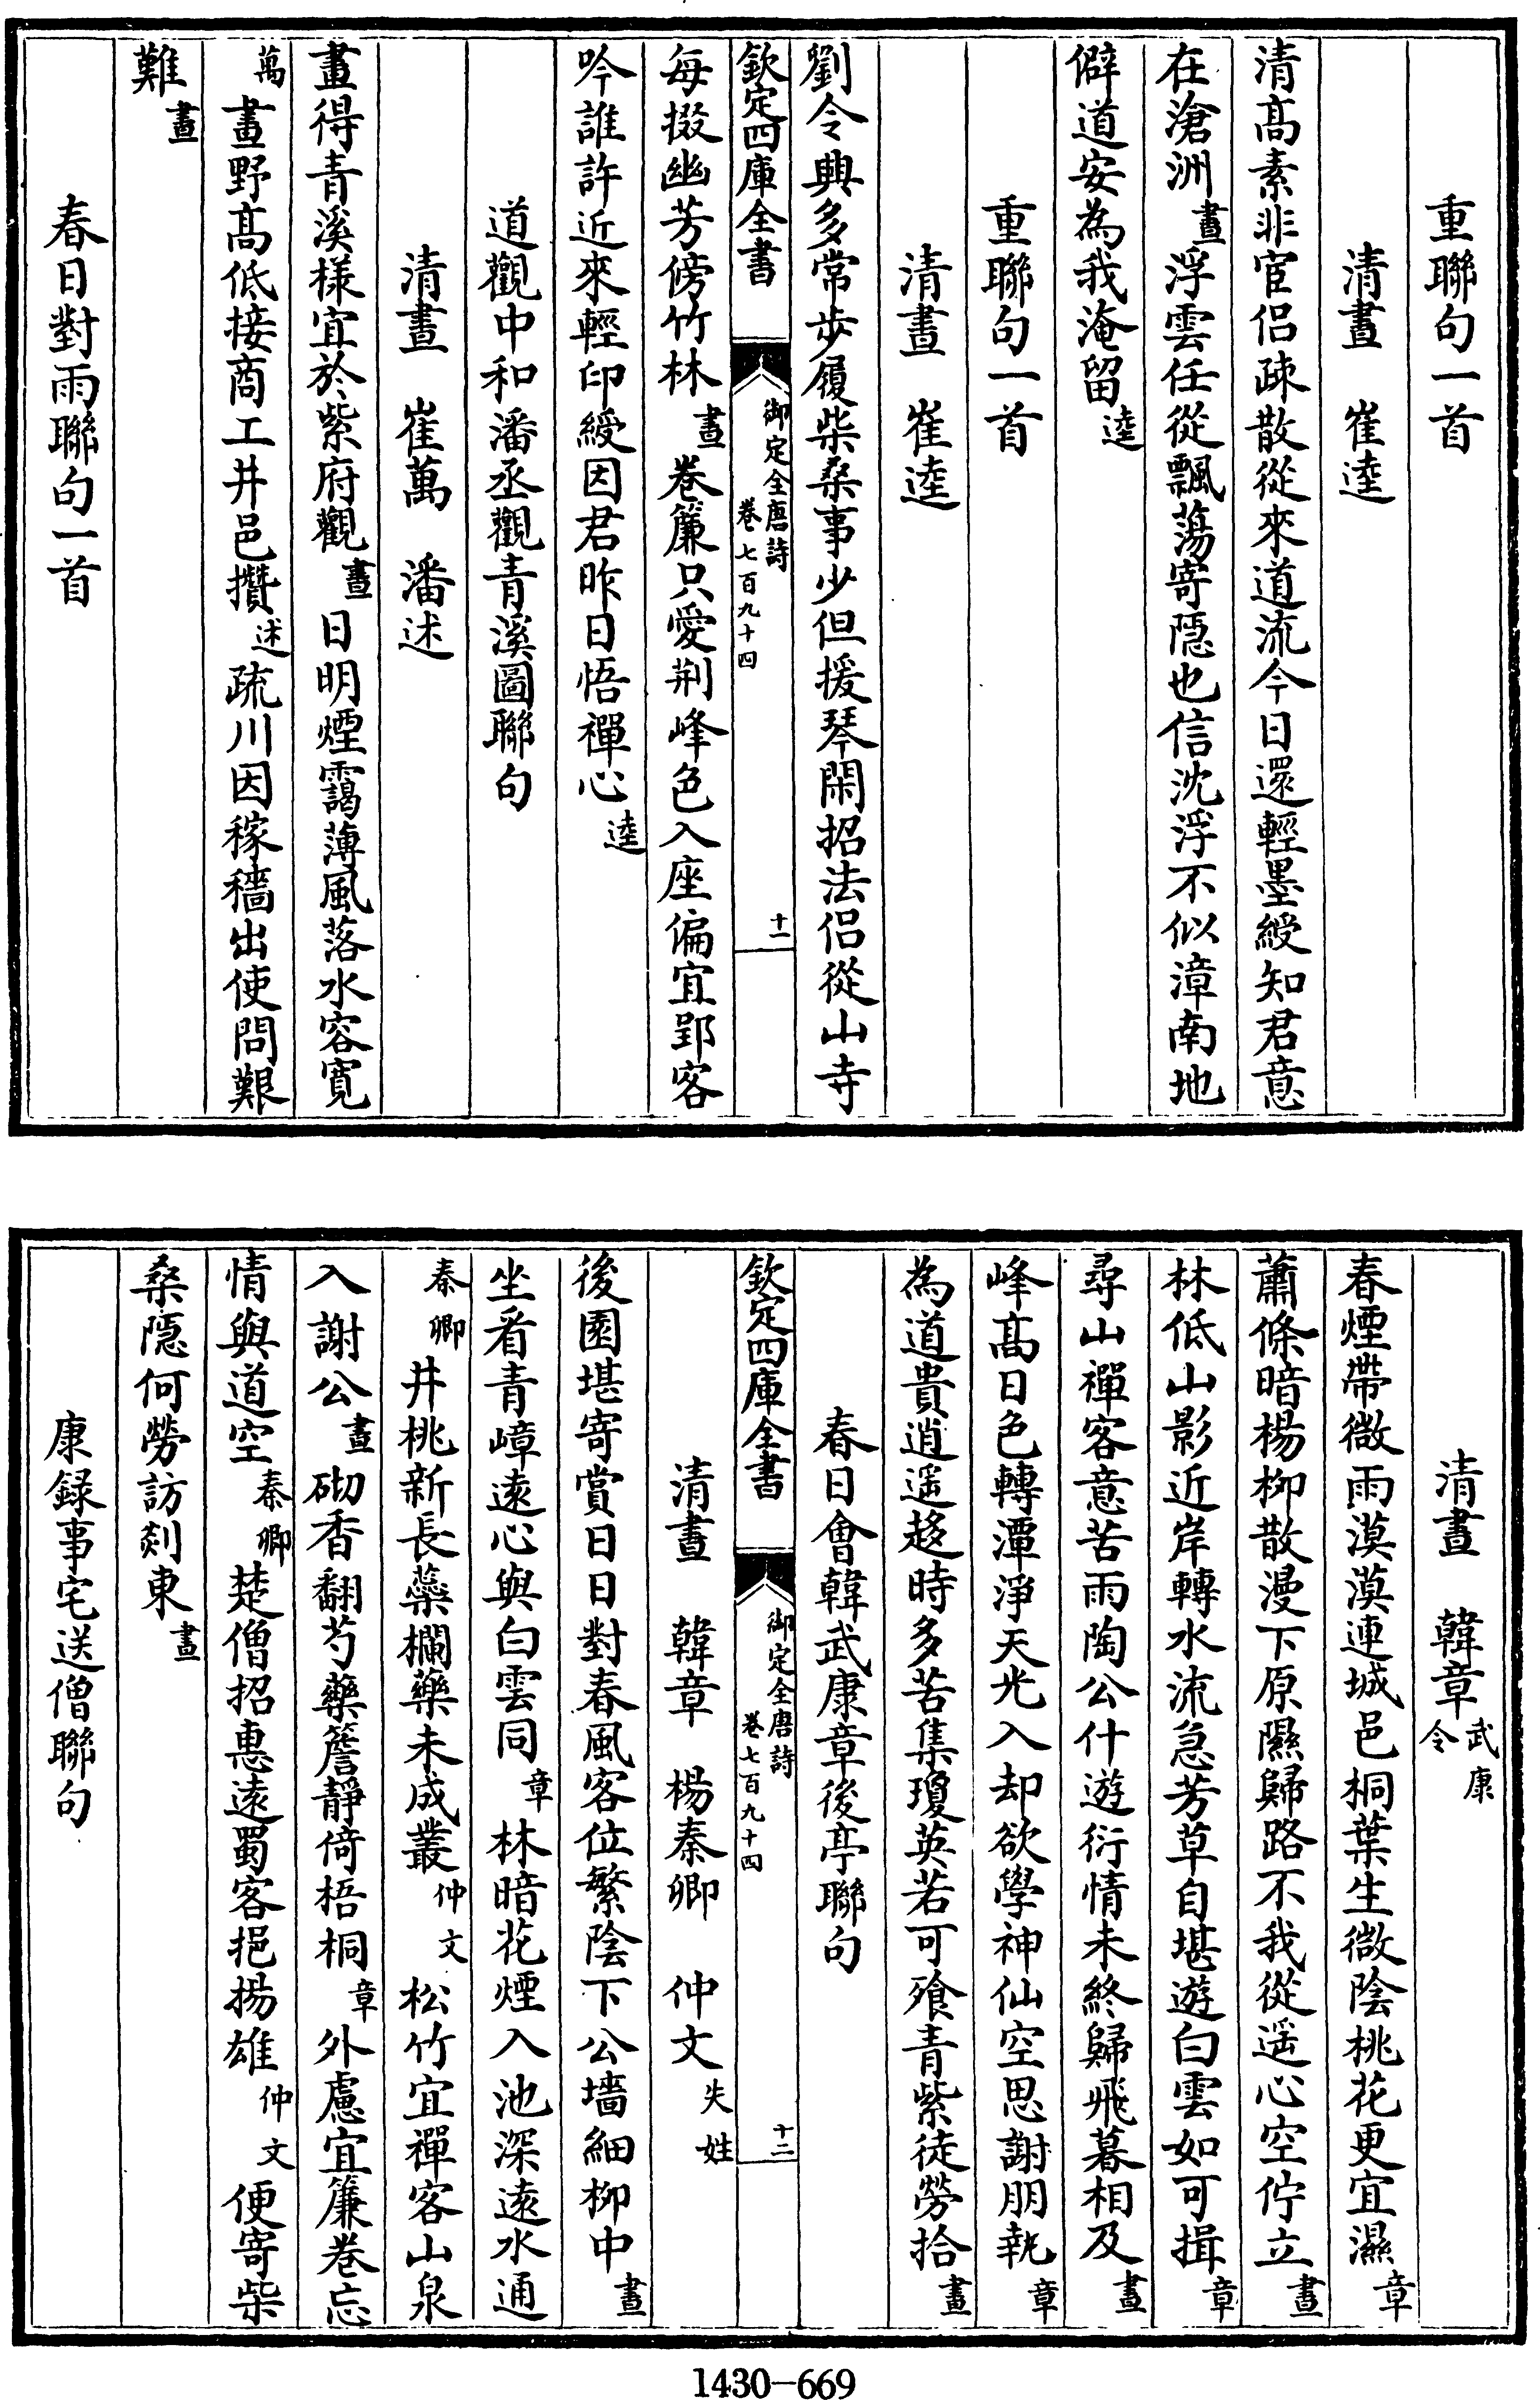 重聯句一首
清晝　崔逵
清髙素非宦侣疎散從來道流今日還輕墨綬知君意
在滄洲晝浮雲任從飄蕩寄隠也信沈浮不似漳南地
僻道安為我淹留逵
重聯句一首
清晝　崔逵
劉令興多常步履柴桑事少但援琴閑招法侣從山寺
欽定四庫全書
御定全唐詩
卷七百九十四
十一
每掇幽芳傍竹林晝卷簾只愛荆峰色入座偏宜郢客
吟誰許近來輕印綬因君昨日悟禪心逵
道觀中和潘丞觀青溪圖聯句
清晝　崔萬　潘述
畫得青溪様宜於紫府觀晝日明煙靄薄風落水容寛
萬畫野髙低接商工井邑攢述疏川因稼穡出使問艱
難晝
春日對雨聯句一首
清晝　韓章武康令
春煙帶微雨漠漠連城邑桐葉生微陰桃花更宜濕章
蕭條暗楊柳散漫下原隰歸路不我從遥心空佇立晝
林低山影近岸轉水流急芳草自堪遊白雲如可揖章
尋山禪客意苦雨陶公什遊衍情未終歸飛暮相及晝
峰髙日色轉潭淨天光入却欲學神仙空思謝朋執章
為道貴逍遥趂時多苦集瓊英若可飱青紫徒勞拾晝
春日會韓武康章後亭聯句
欽定四庫全書
御定全唐詩
卷七百九十四
十二
清晝　韓章　楊秦卿　仲文失姓
後園堪寄賞日日對春風客位繁陰下公墻細柳中晝
坐看青嶂遠心與白雲同章林暗花煙入池深遠水通
秦卿井桃新長蘂欄藥未成叢仲文松竹宜禪客山泉
入謝公晝砌香翻芍藥簷靜倚梧桐章外慮宜簾卷忘
情與道空秦卿楚僧招惠遠蜀客挹揚雄仲文便寄柴
桑隠何勞訪剡東晝
康録事宅送僧聯句
1430-669